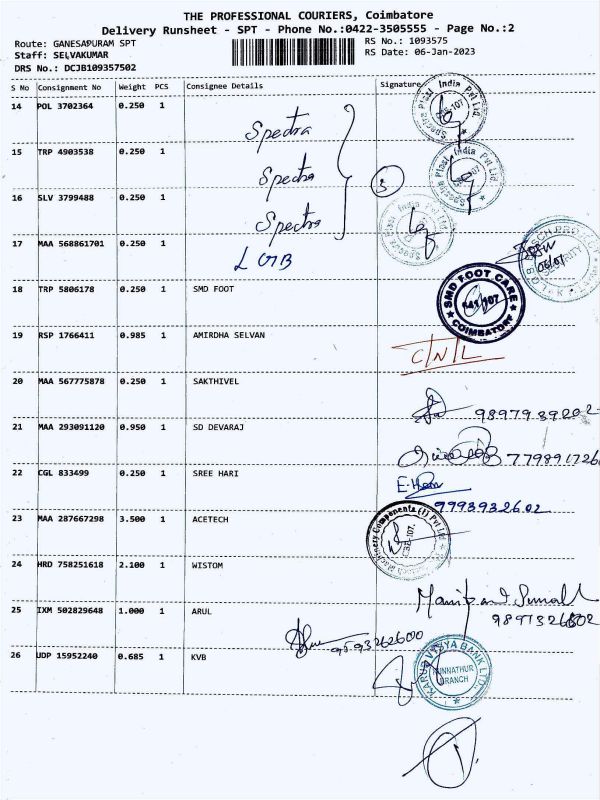 THE PROFESSIONAL COURIERS, Coimbatore
Delivery Runsheet - SPT - Phone No.:0422-3505555 - Page No.:2
Route: GANESAPURAM SPT
RS No.: 1093575
Staff: SELVAKUMAR
RS Date: 06-Jan-2023
DRS No.: DCJB109357502
S No Consignment No Weight PCS Consignee Details Signature
14 POL 3702364 0.250 1 Spectra
15 TRP 4903538 0.250 1 Spectra
16 SLV 3799488 0.250 1 Spectra
3
17 MAA 568861701 0.250 1 LGB
18 TRP 5806178 0.250 1 SMD FOOT
SMD FOOT CARE
COIMBATORE
19 RSP 1766411 0.985 1 AMIRDHA SELVAN
CNL
20 MAA 567775878 0.250 1 SAKTHIVEL
9897939202
21 MAA 293091120 0.950 1 SD DEVARAJ
22 CGL 833499 0.250 1 SREE HARI
9993932602
23 MAA 287667298 3.500 1 ACETECH
24 HRD 758251618 2.100 1 WISTOM
25 IXM 502829648 1.000 1 ARUL
26 UDP 15952240 0.685 1 KVB
KARUR VYSYA BANK LTD.
BRANCH